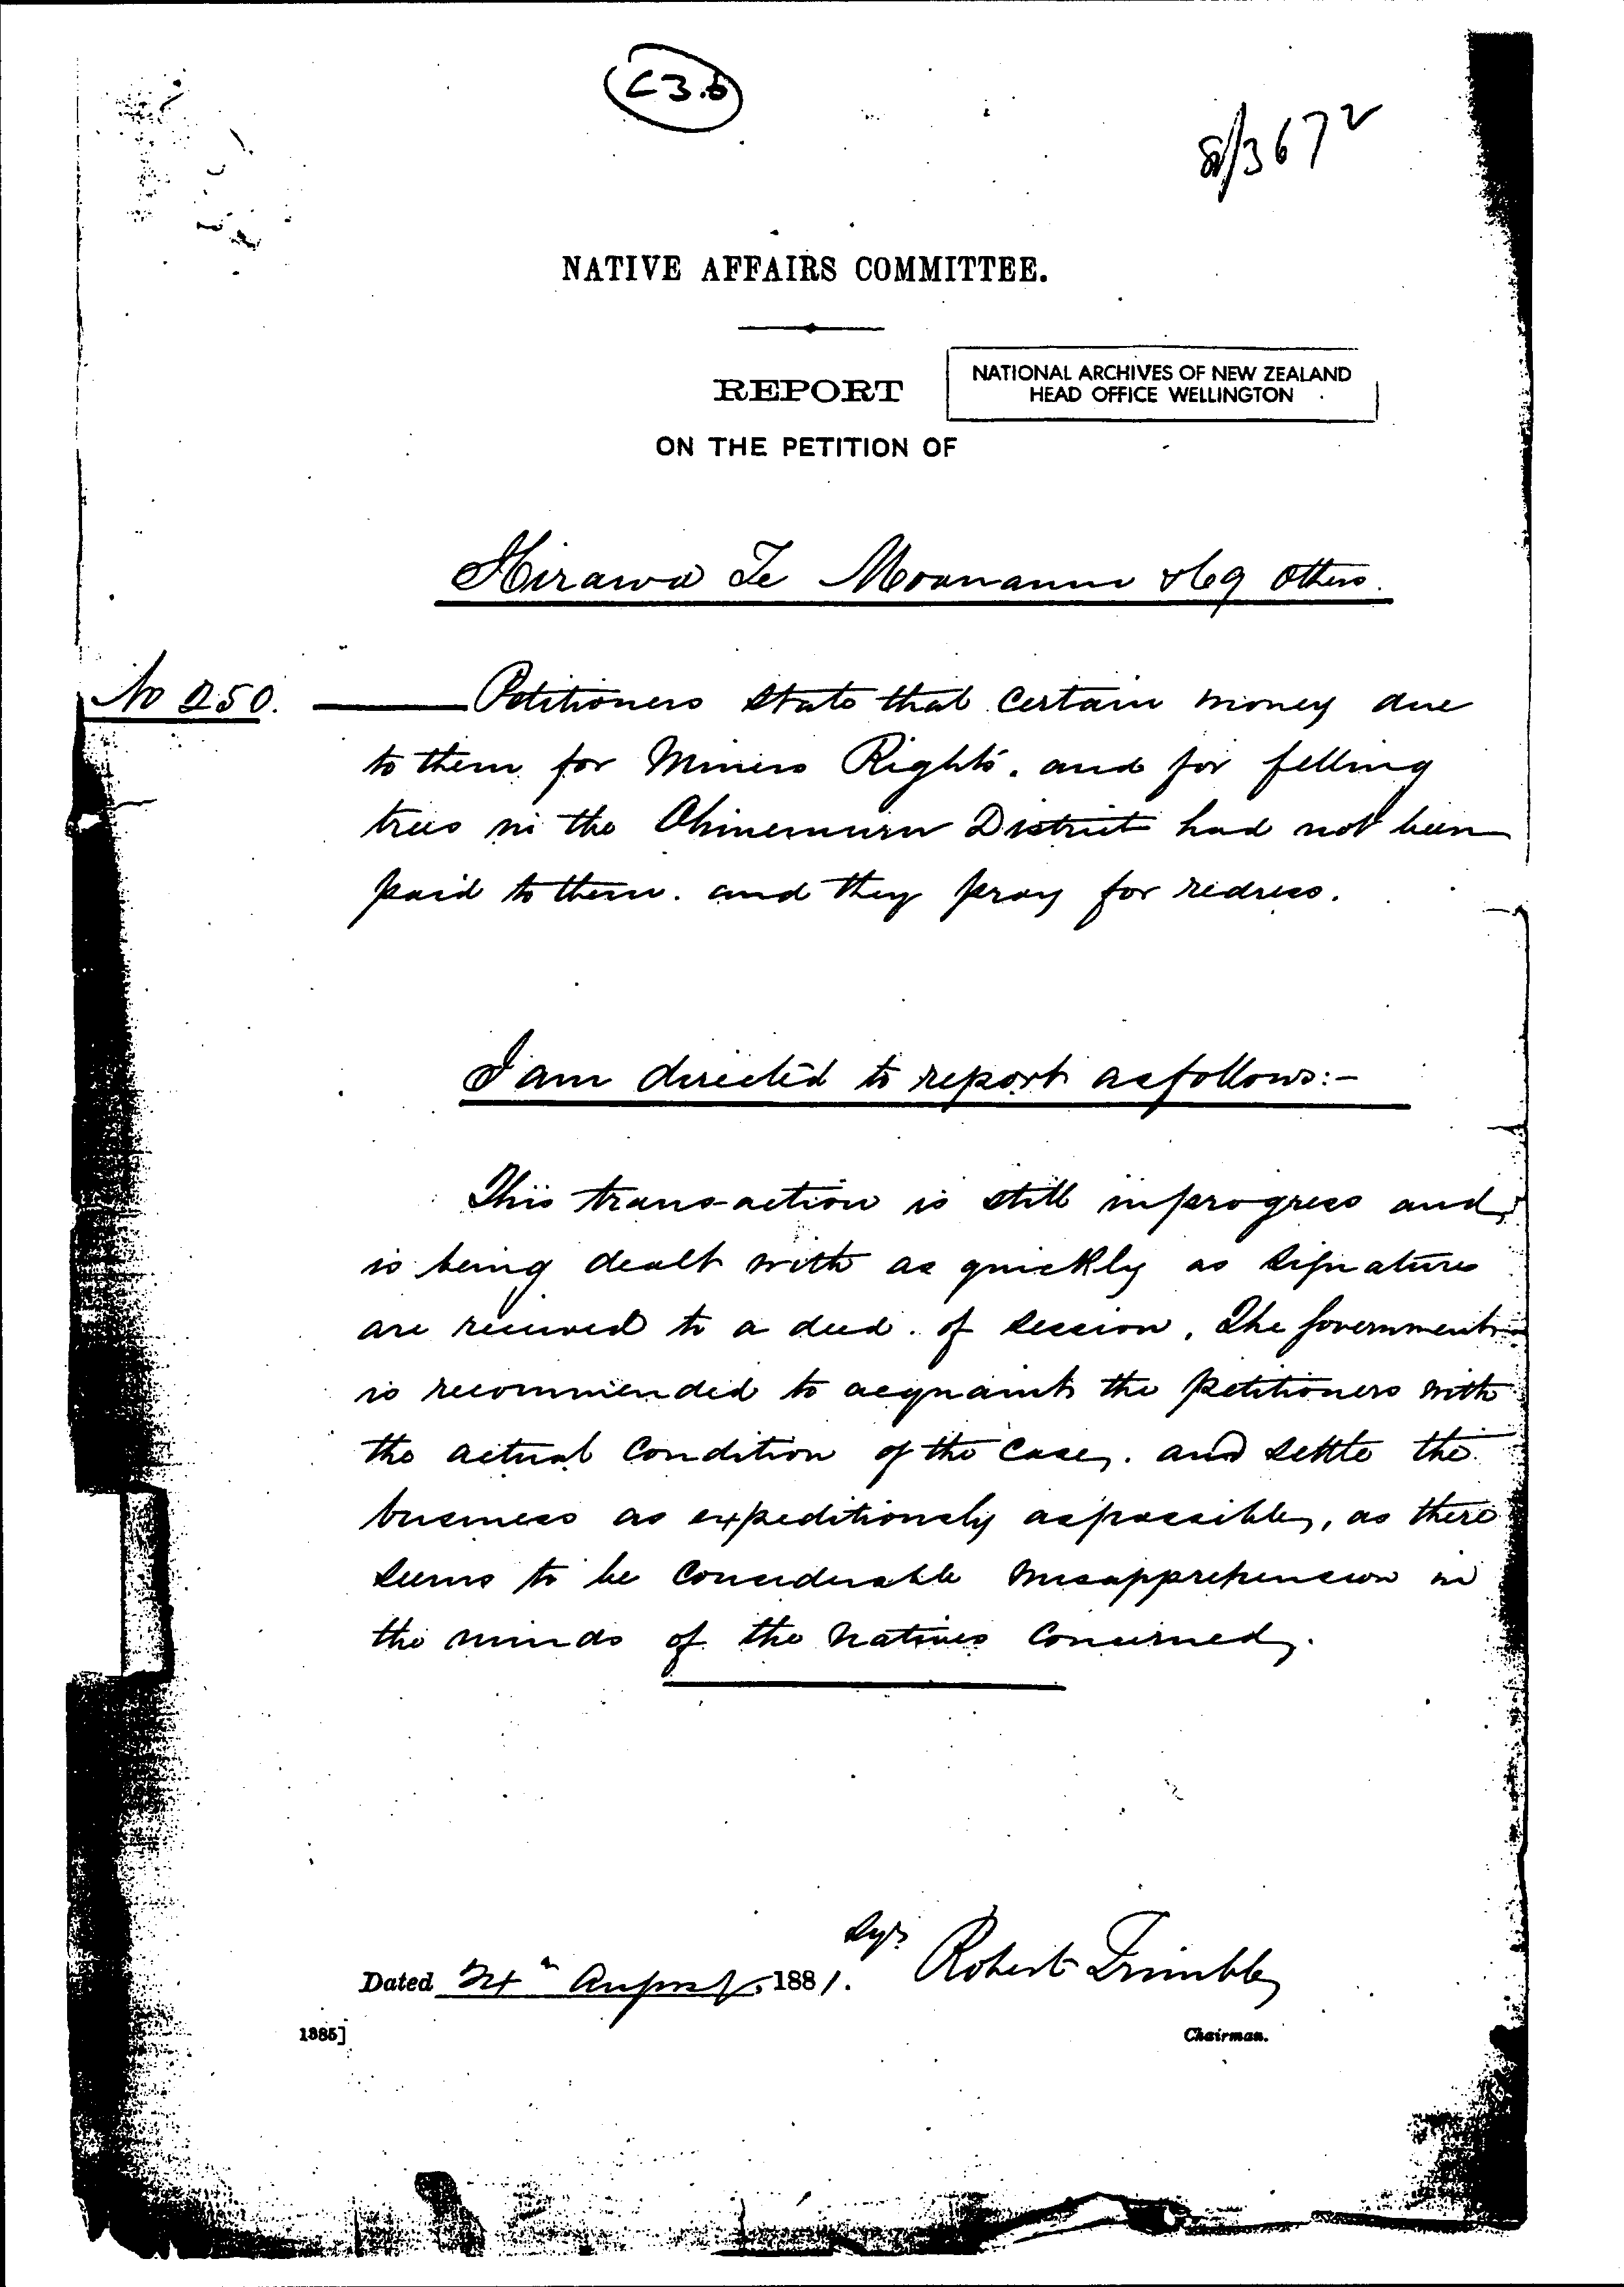 C3.b
81/3672
NATIVE AFFAIRS COMMITTEE.
REPORT
NATIONAL ARCHIVES OF NEW ZEALAND
HEAD OFFICE WELLINGTON
ON THE PETITION OF
Hirawa Te Moananui & 69 Others.
No 250. Petitioners state that certain money due
to them for Miners Rights. and for felling
trees in the Ohinemuru District had not been
paid to them. and they pray for redress.
I am directed to report as follows:-
This trans-action is still in progress and
is being dealt with as quickly as signatures
are received to a deed. of session. The Government
is recommended to acquaint the petitioners with
the actual Condition of the Case,. and settle the
business as expeditiously as possible, as there
seems to be Considerable misapprehension in
the minds of the Natives Concerned.
Dated 24th August 1881. Robert Trimble
1385]
Chairman.